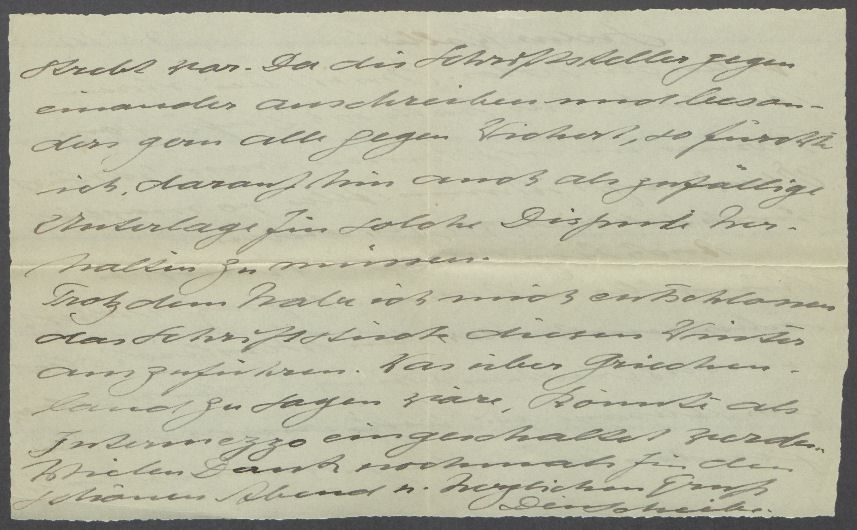 strebt war. Da die Schriftsteller gegen
einander anschreiben und beson-
ders gern alle gegen Wichert, so fürchte
ich, daraufhin auch als zufällige
Unterlage für solche Dispute her-
halten zu müssen.
Trotzdem habe ich mich entschlossen
das Schriftstück diesen Winter
auszuführen. Was über Griechen-
land zu sagen wäre, könnte als
Intermezzo eingeschaltet werden.
Vielen Dank nochmals für den
schönen Abend u. herzlichen Gruß
Dein